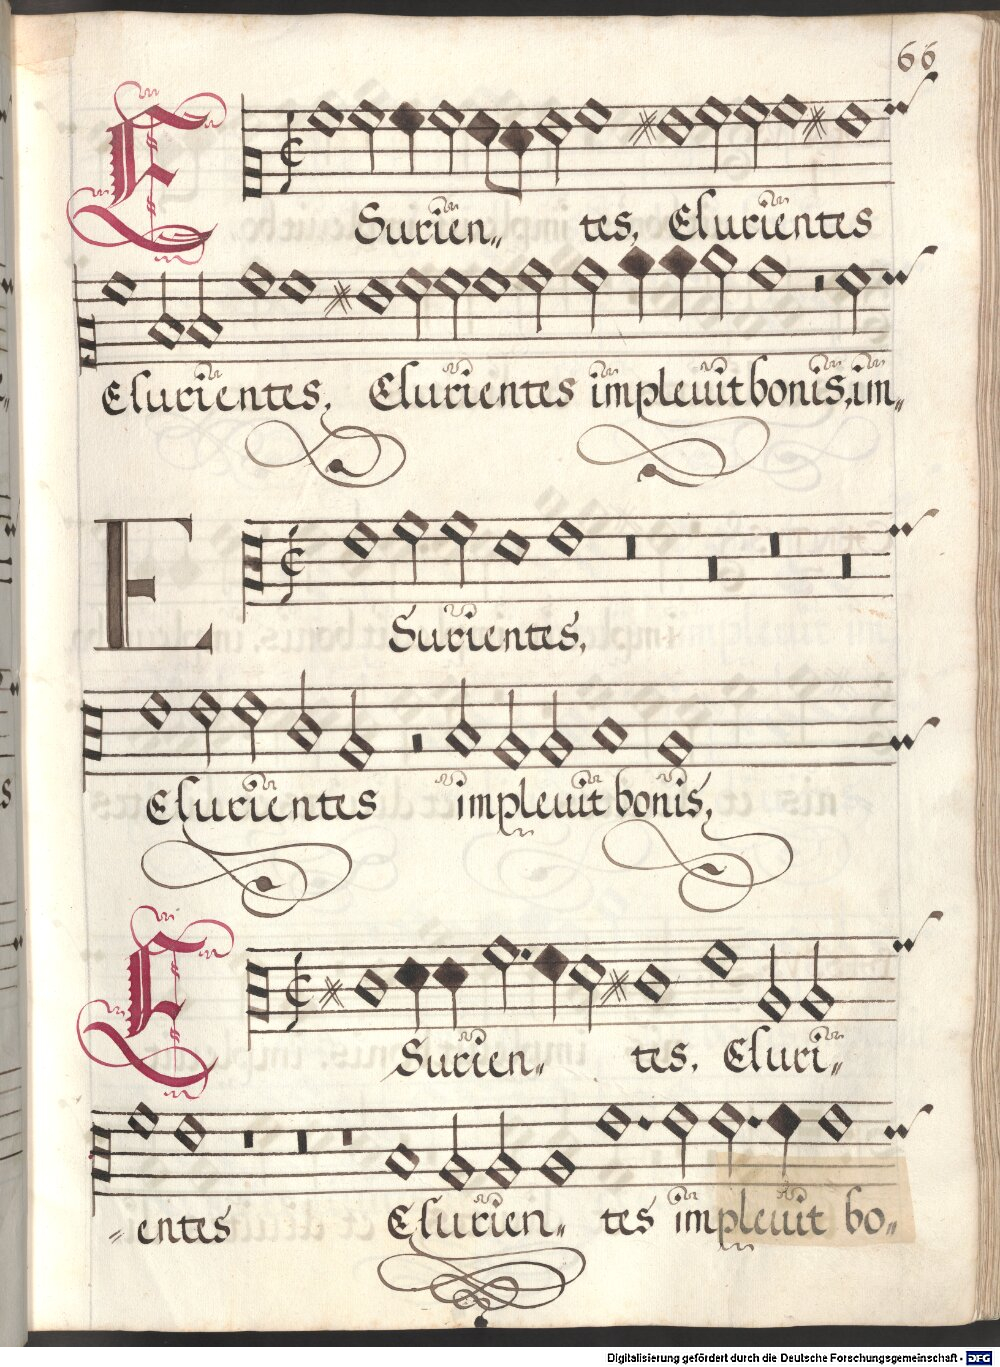 66
ESurien„ tes, Esurientes
Esurientes, Esurientes impleuit bonis, im„
ESurientes,
Esurientes impleuit bonis,
ESurien„ tes, Esuri„
„entes Esurien„ tes impleuit bo„
Digitalisierung gefördert durch die Deutsche Forschungsgemeinschaft - DFG